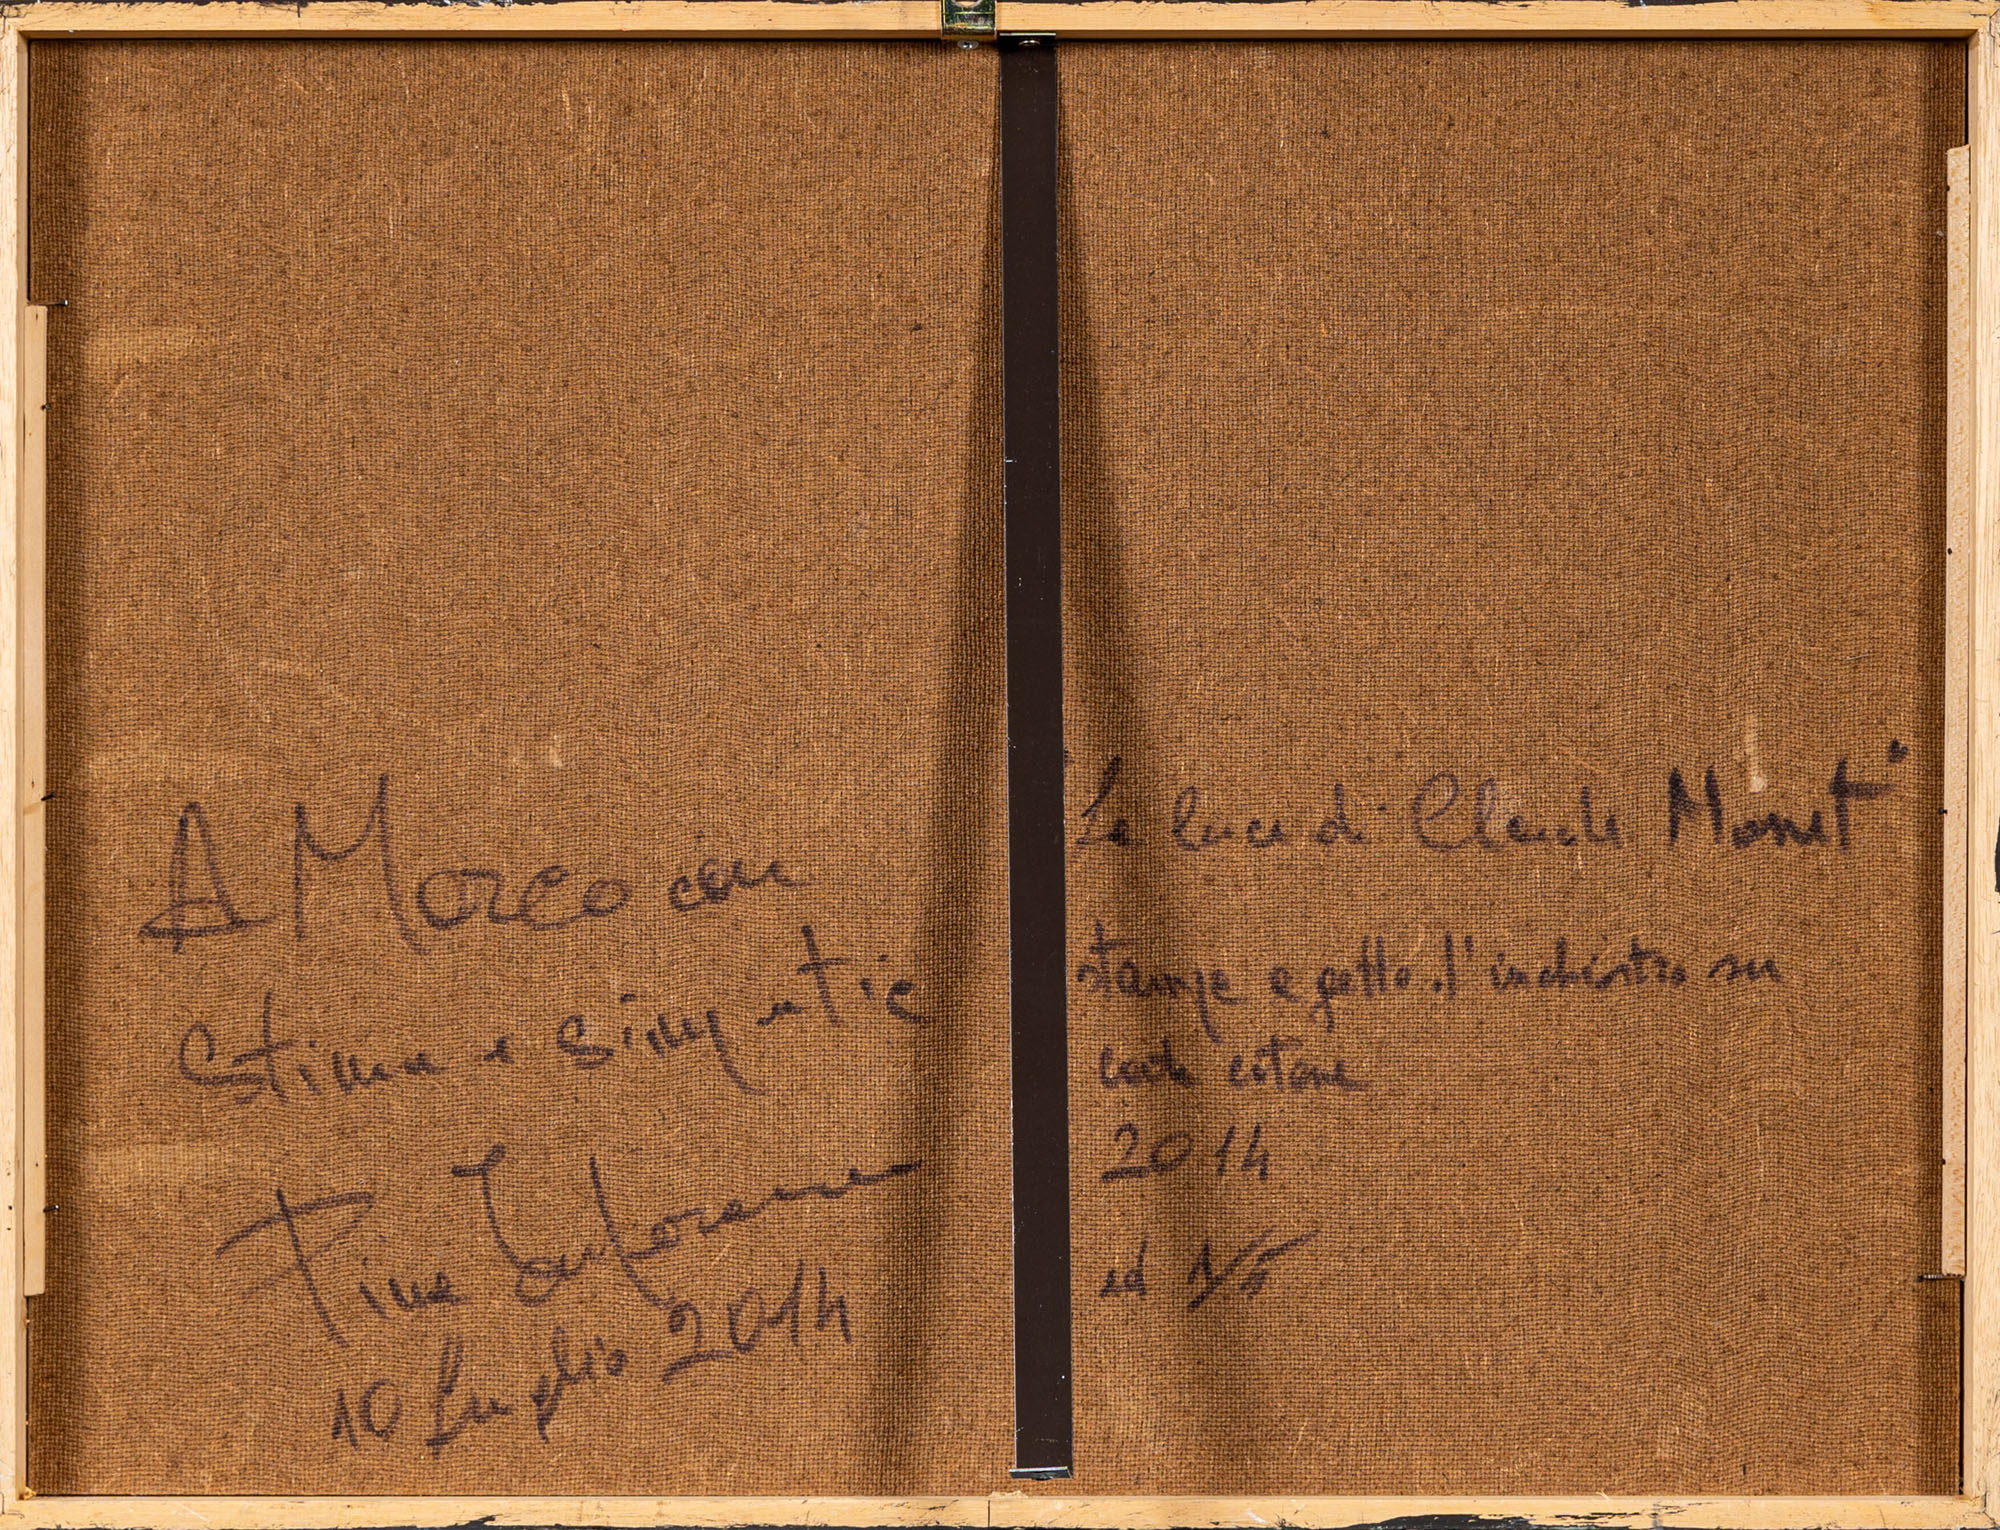 A Marco con
stima e simpatia
Pino
10 Luglio 2014
"La luce di Claude Monet"
stampa a getto d'inchiostro su
carta cotone
2014
ed 1/5